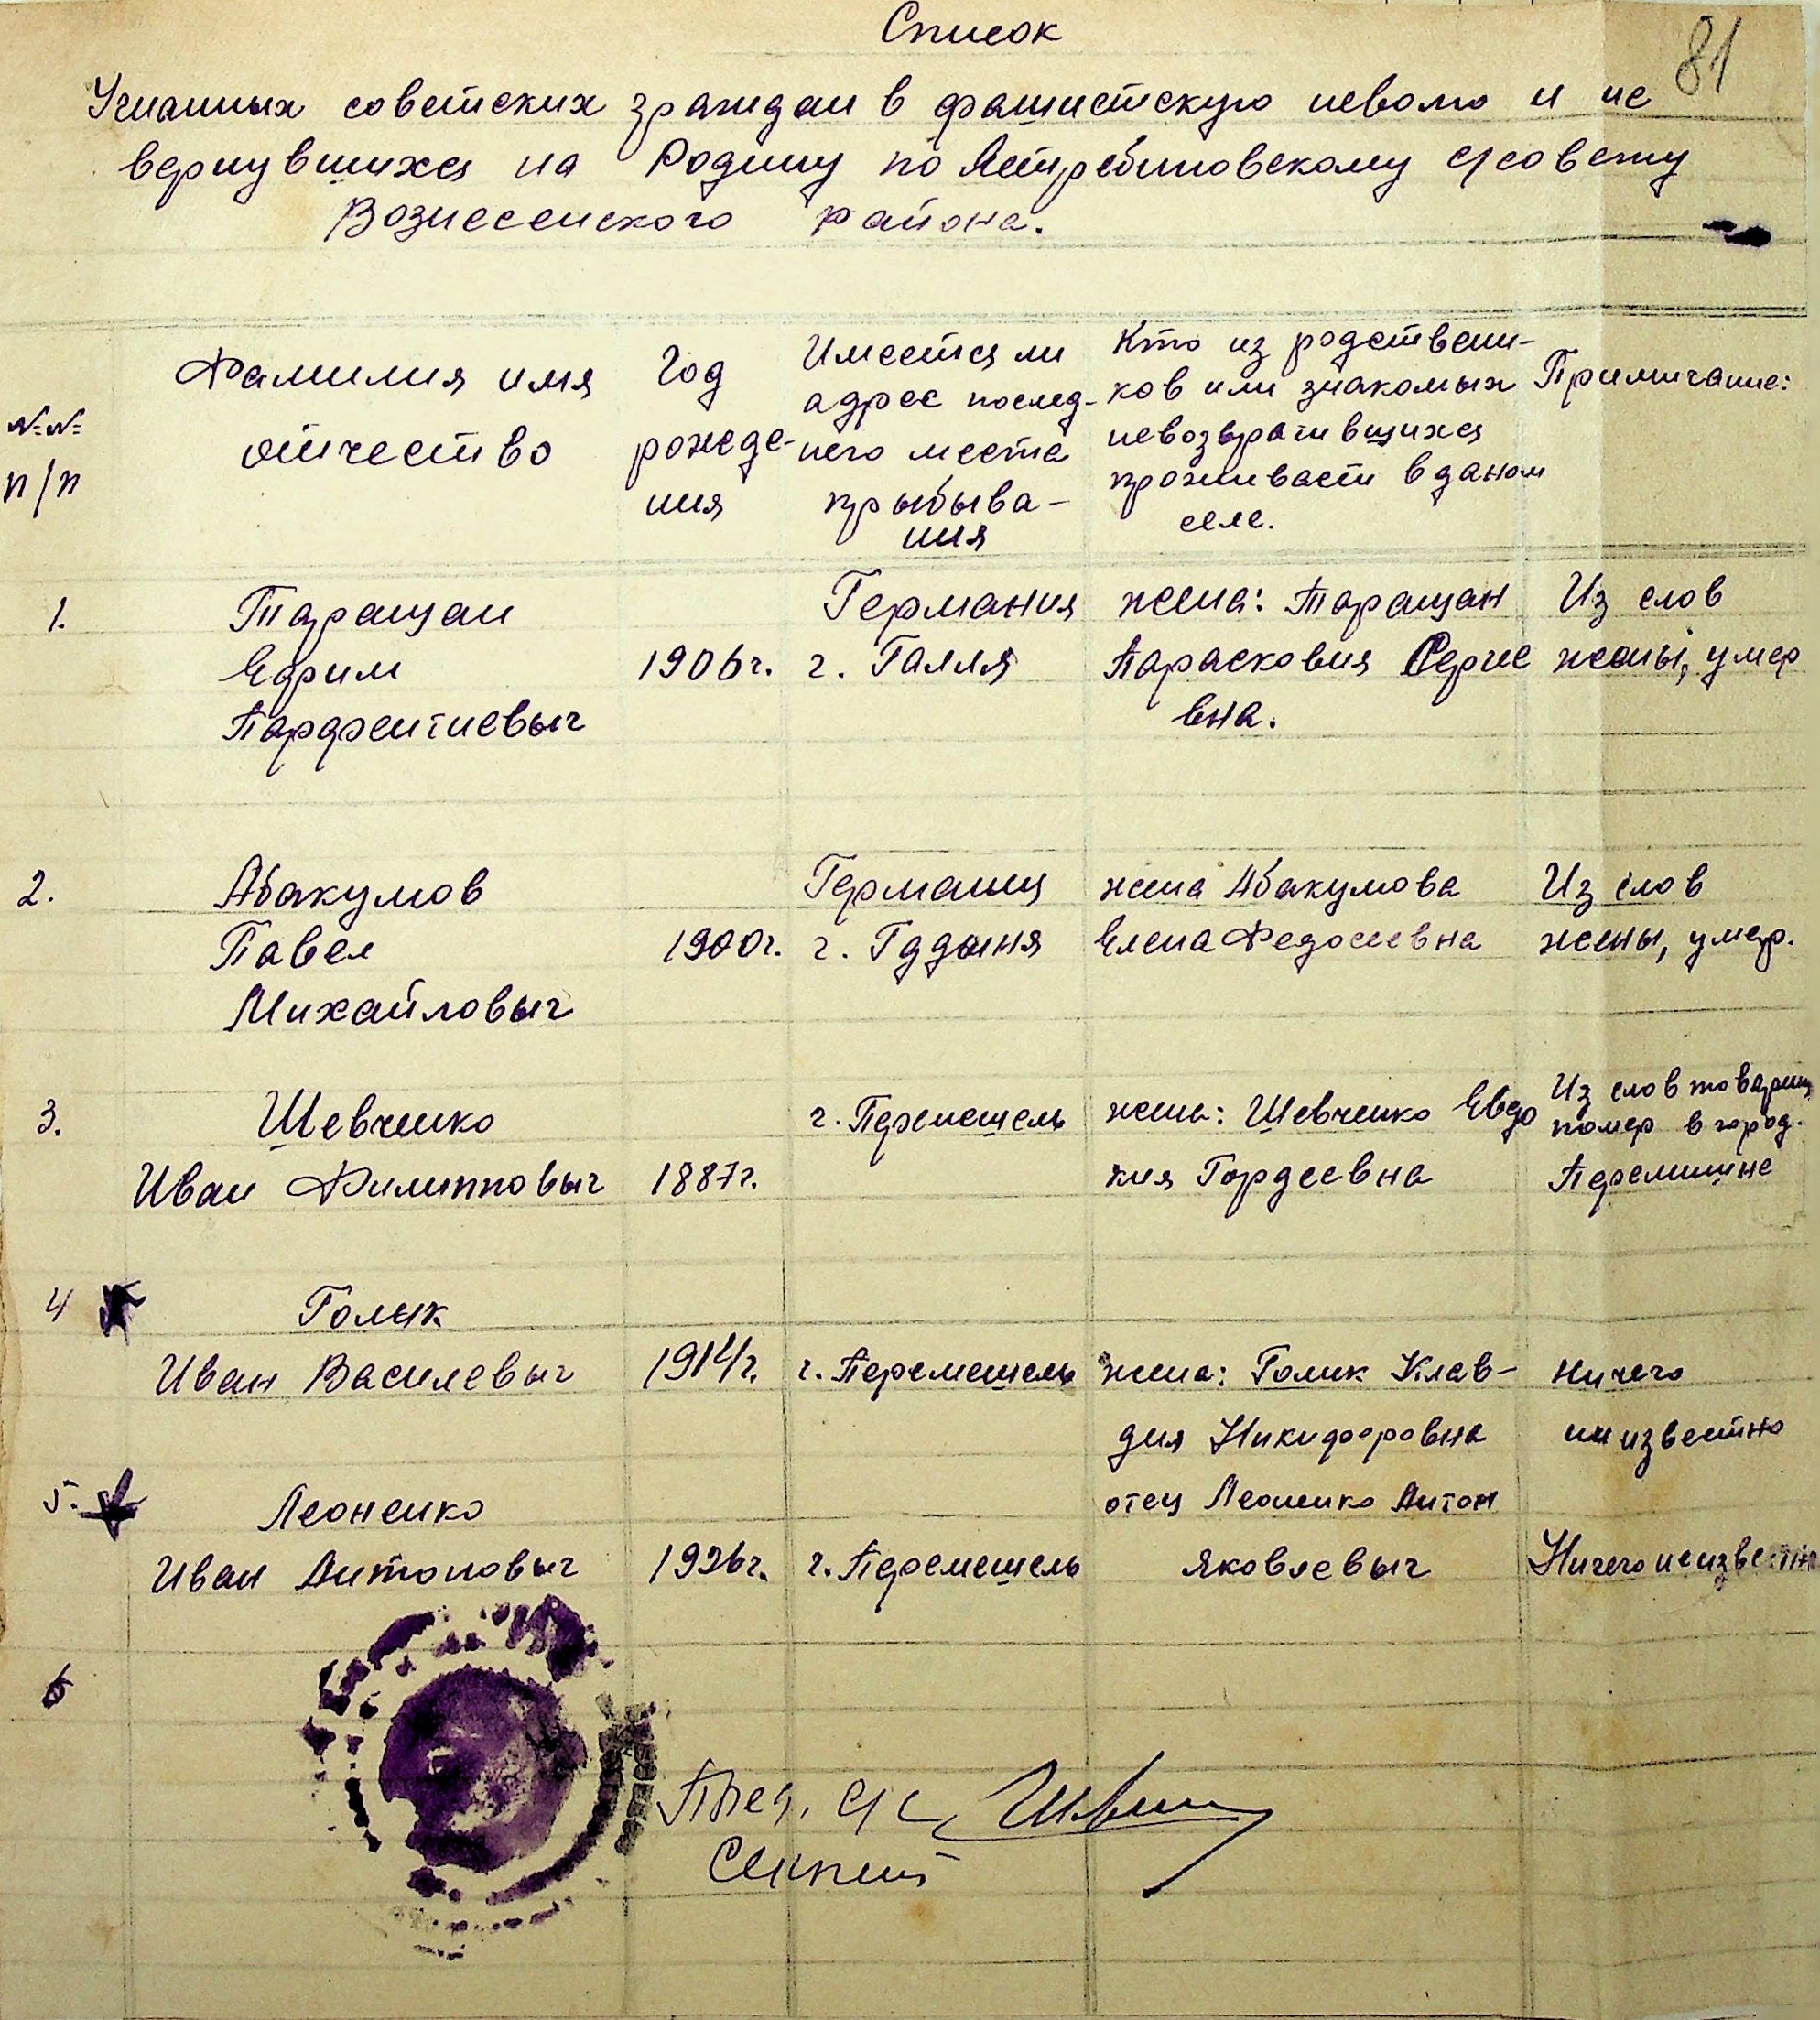 81
Список
Угнанных советских граждан в фашистскую неволю и не
вернувшихся на Родину по Ястребиновскому с/совету
Вознесенского района.
№№ п/п
Фамилия имя отчество
Год рожде-ния
Имеется ли адрес послед-него места прыбыва-ния
Кто из родственн-ков или знакомых невозвративщихся проживает в даном селе.
Примичание:
1. Таращан Германия жена: Таращан Из слов
Ефрим 1906г. г. Галля Парасковия Сергее жены, умер
Парфентиевыч вна.
2. Абакумов Германия жена Абакумова Из слов
Павел 1900г. г. Гддыня Елена Федосеевна жены, умер.
Михайловыч
3. Шевченко г. Перемешель жена: Шевченко Евдо Из слов товарищ
помер в город.
Иван Филипповыч 1887г. кия Гордеевна Перемишне
4 Голык
Иван Василевыч 1914г. г. Перемешель жена: Голик Клав- ничего
дия Никифоровна неизвестно
5. Леоненко отец Леоненко Антон
Иван Антоновыч 1926г. г. Перемешель Яковлевыч Ничего неизвестно
6
Пред. с/с
Секрет